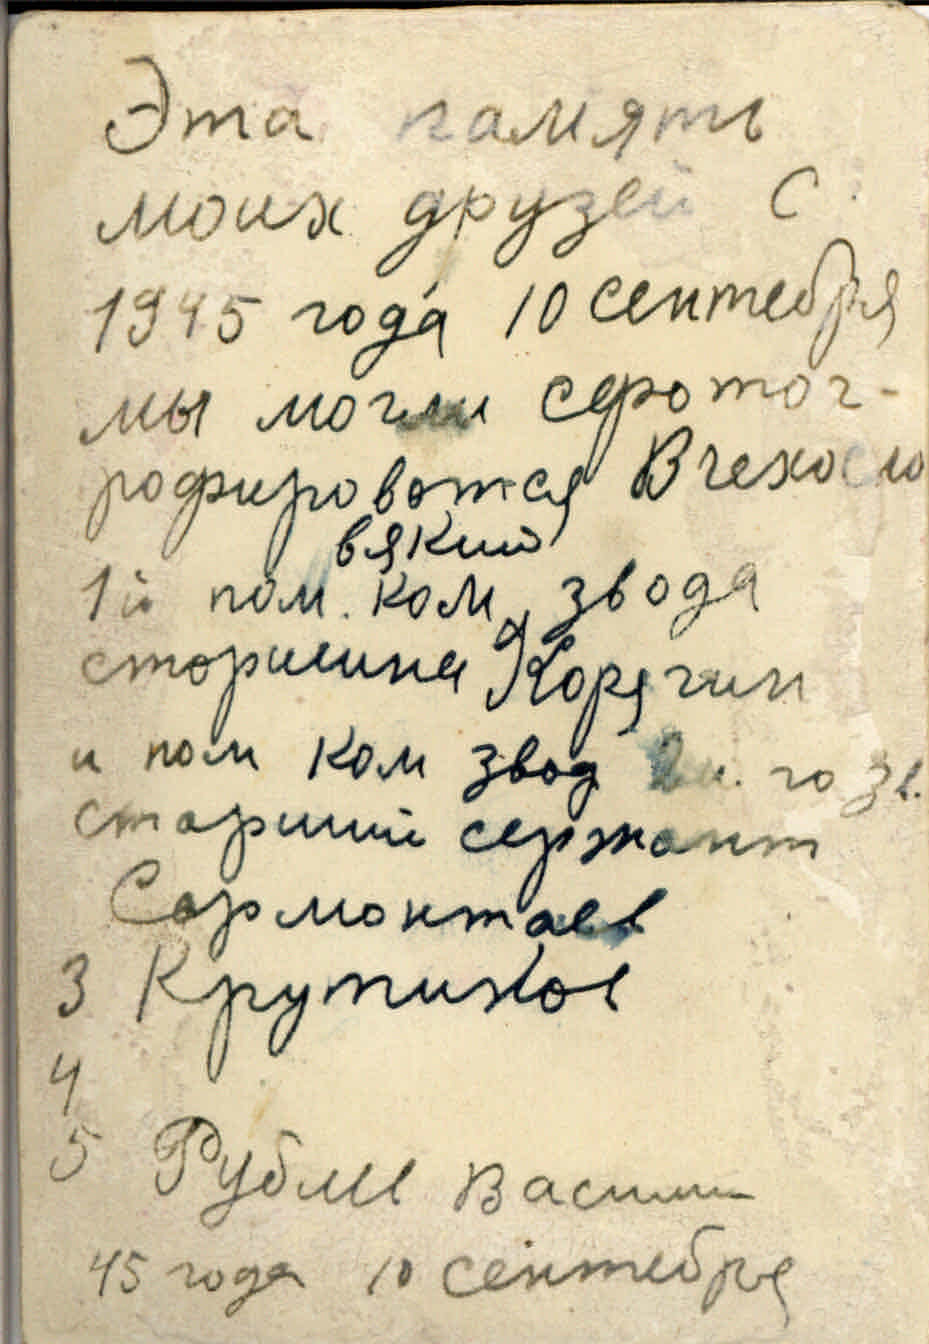 Эта память
моих друзей С
1945 года 10 сентебря
мы могли сфотог-
рофироватся Вчехосло
вякий
1й пом. ком. звода
старшина Корягин
и пом ком звод го зв.
старший сержант
Сармонтаев
3 Крутиков
4
5 Рублев Васи
45 года 10 сентебря